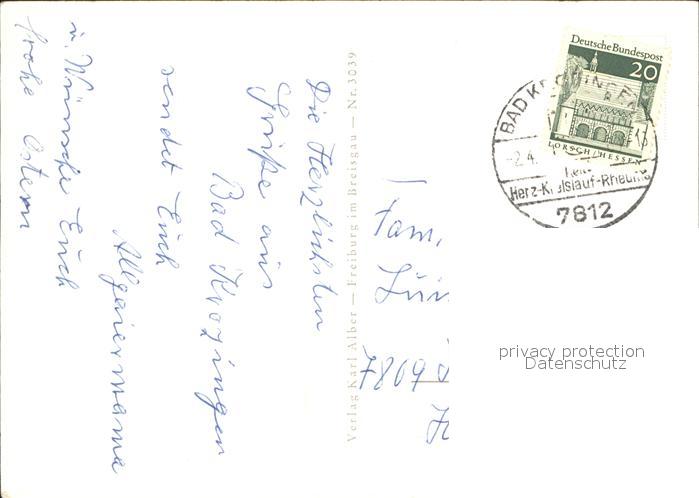 Die Herzlichsten
Grüße aus
Bad Krozingen
sendet Euch
Allgaiermama
u. Wünsche Euch
frohe Ostern
Verlag Karl Alber — Freiburg im Breisgau — Nr. 3039
Deutsche Bundespost
20
LORSCH / HESSEN
BAD KROZINGEN
-2.4.
Herz-Kreislauf-Rheuma
7812
Fam.
privacy protection
Datenschutz